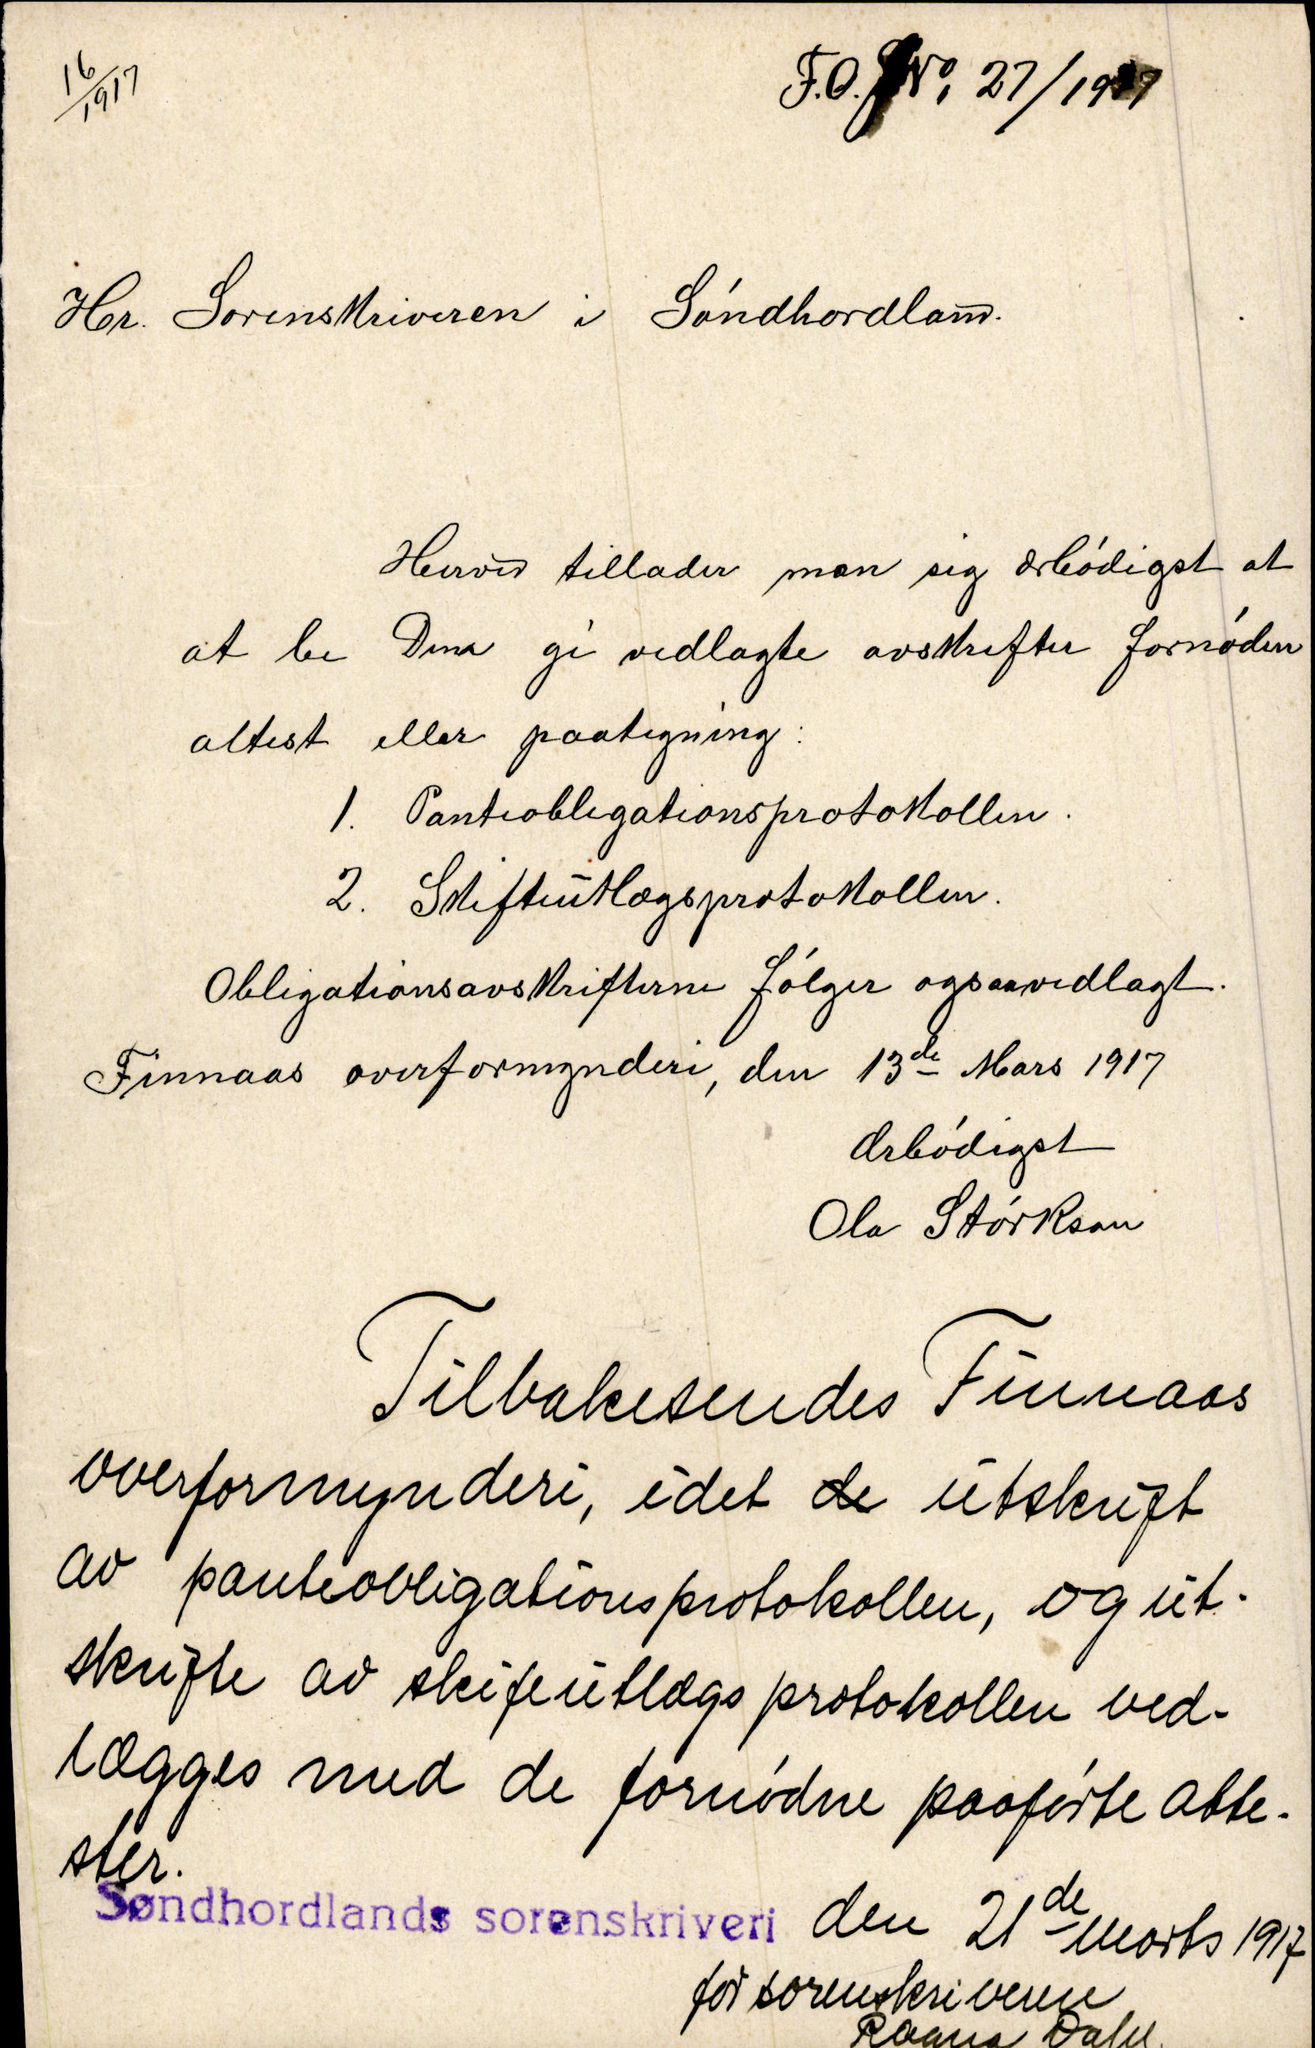 16/1917
F.O. J No, 27/1917
Hr. Sorenskriveren i Søndhordland.
Herved tillader man sig ærbødigst at
at be Dem gi vedlagte avskrifter fornøden
attest eller paategning:
1. Panteobligationsprotokollen.
2. Skifteutlægsprotokollen.
Obligationsavskrifterne følger ogsaa vedlagt.
Finnaas overformynderi, den 13de Mars 1917
Ærbødigst
Ola Størkson
Tilbakesendes Finnaas
overformynderi, idet de utskrift
av panteobligationsprotokollen, og ut-
skrifte av skifeutlægsprotokollen ved-
lægges med de fornødne paaførte atte-
ster.
Søndhordlands sorenskriveri den 21de Marts 1917
for sorenskriveren
Dahl